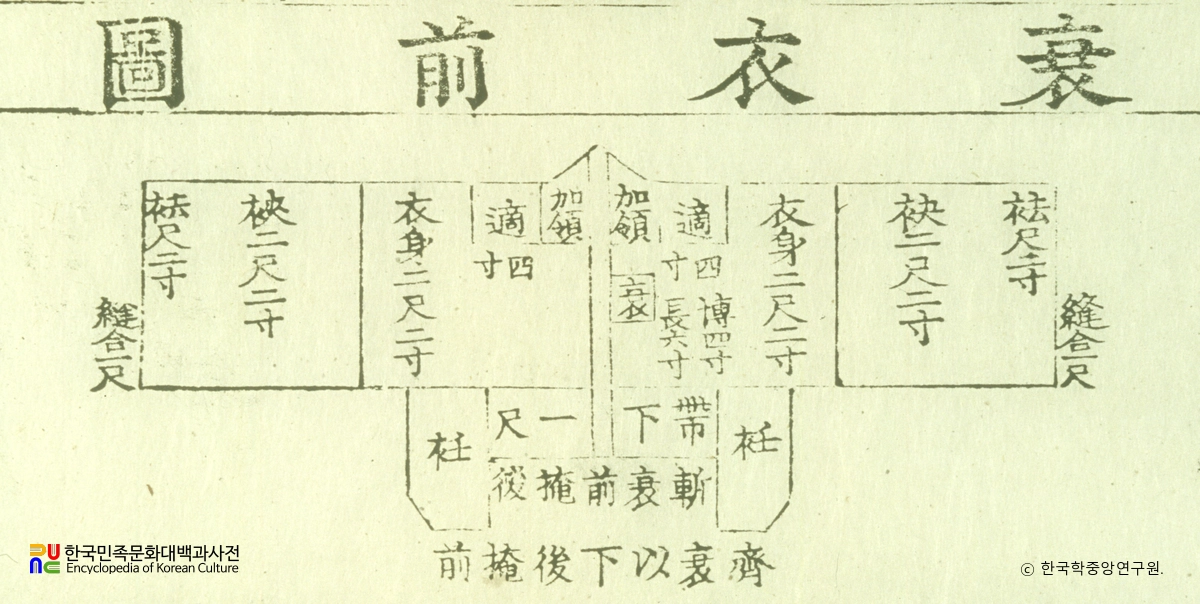 衰衣前圖
袪尺二寸
袂二尺二寸
衣身二尺二寸
適
四寸
加領
衰
博四寸
長六寸
加領
適
四寸
衣身二尺二寸
袂二尺二寸
袪尺二寸
縫合一尺
縫合一尺
帶下
一尺
衽
衽
斬衰前掩後
齊衰以下後掩前
한국민족문화대백과사전
Encyclopedia of Korean Culture
ⓒ 한국학중앙연구원.